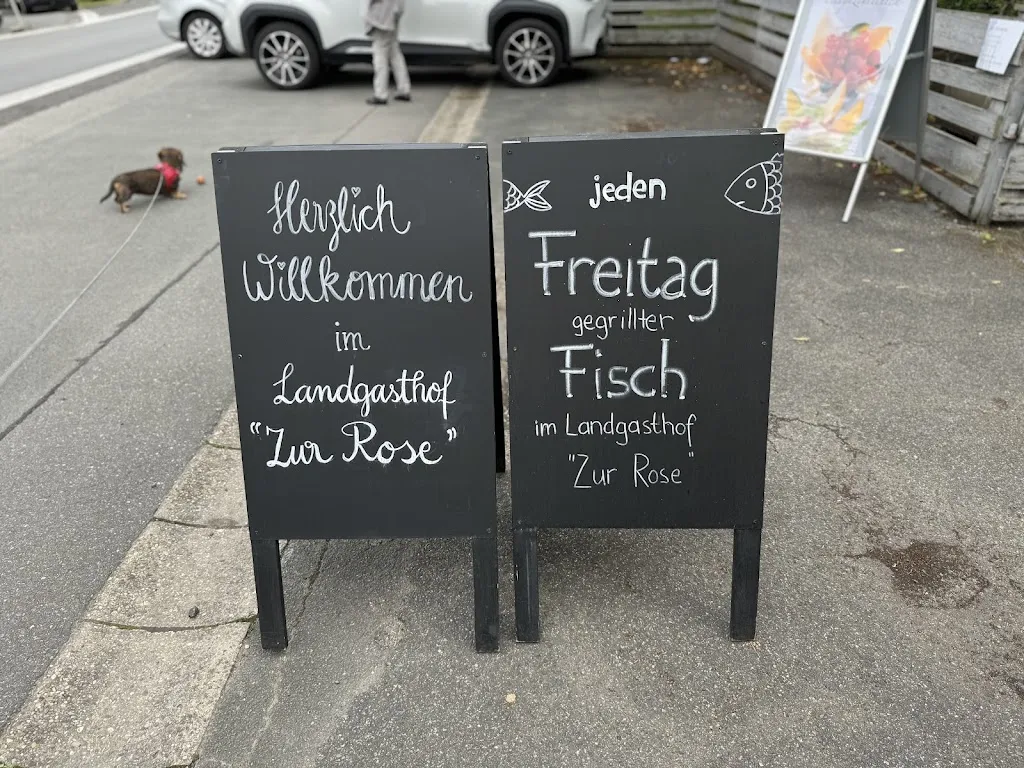 Herzlich
Willkommen
im
Landgasthof
"Zur Rose"
jeden
Freitag
gegrillter
Fisch
im Landgasthof
"Zur Rose"